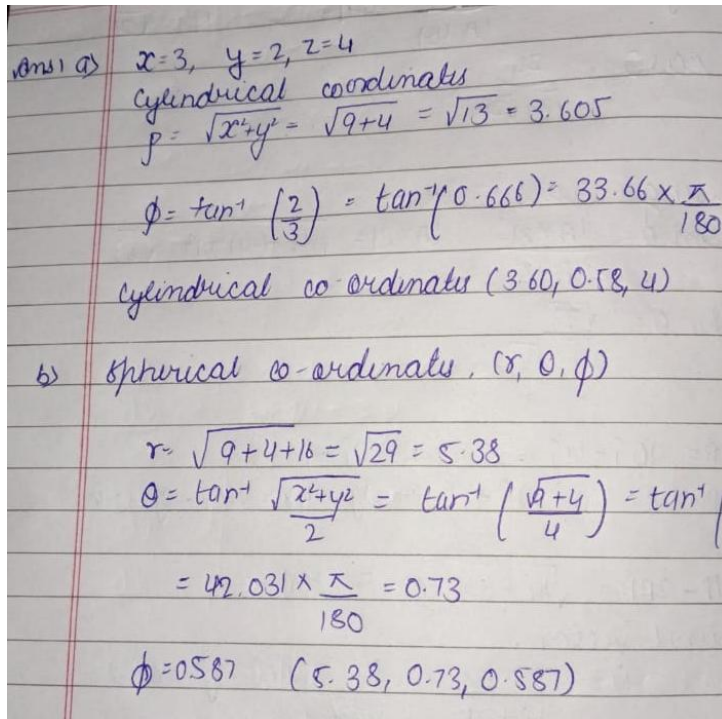 Ans 1 a) x=3, y=2, z=4
cylindrical coordinates
ρ = √x²+y² = √9+4 = √13 = 3.605
ϕ = tan⁻¹ (2/3) = tan⁻¹(0.666) = 33.66 × π/180
cylindrical co ordinates (3.60, 0.58, 4)
b) spherical co-ordinates, (r, θ, ϕ)
r = √9+4+16 = √29 = 5.38
θ = tan⁻¹ √x²+y²/2 = tan⁻¹ (√9+4/4) = tan⁻¹ (
= 42.031 × π/180 = 0.73
ϕ = 0587 (5.38, 0.73, 0.587)